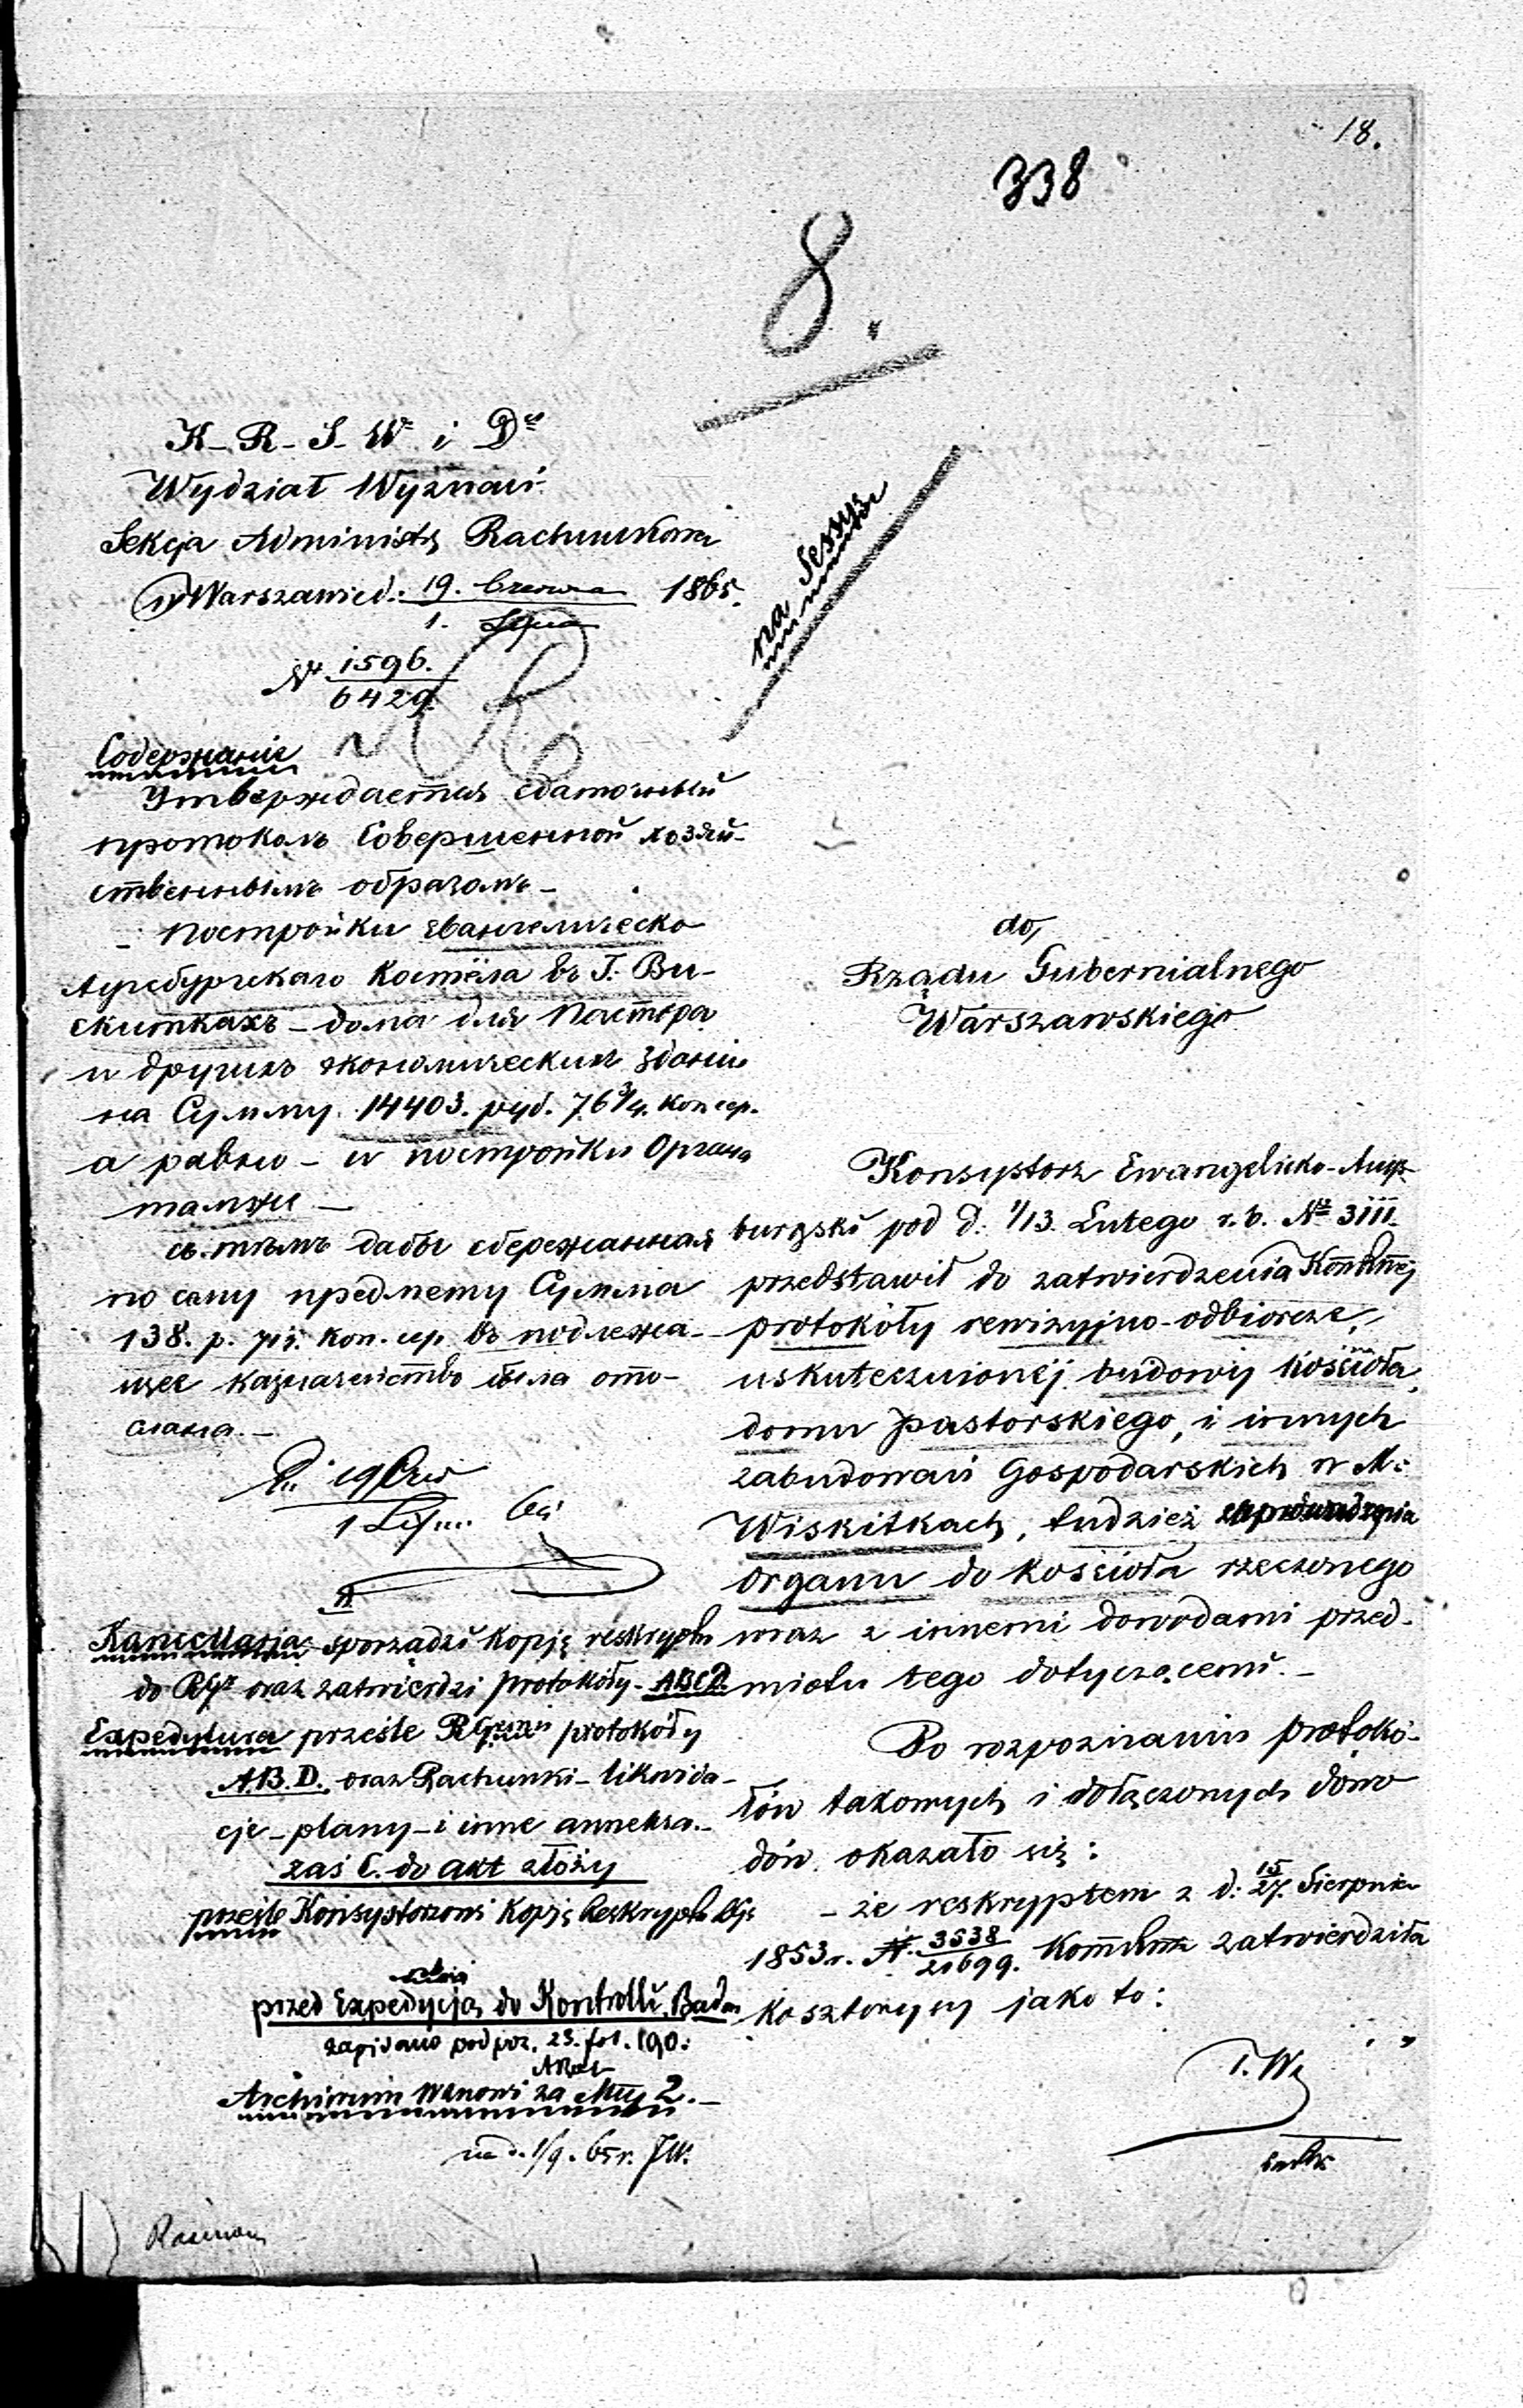 18.
338
8.
K-R-S-W i D
Wydział Wyznań
Sekcja Administr Rachunkowa
w Warszawie d. 19. Czerwca 1865.
1. Lipca
na Sessyę
№ 1596.
6429.
Содержаніе
Утверждается сдаточный
протоколъ совершенной хозяй-
ственнымъ образомъ -
постройки Евангелическо
Аугсбургскаго Костёла въ Г. Ви-
скиткахъ - дома для Пастора
и другихъ экономическихъ зданій
на Сумму 14403. руб. 76 3/4. коп сер.
а равно - и постройки Органа
тамже -
съ тѣмъ дабы сбереженная
по сему предмету Сумма
138. р. коп. сер. въ подлежа-
щее казначейство была ото-
слана. -
19 Czer
1 Lip
Kancellarja sporządzi kopję reskryptu
do oraz zatwierdzi protokóły - ABCD.
Expedytura prześle protokóły
A.B.D. oraz Rachunki - likwida-
cje - plany - i inne annexa. -
zaś C. do akt złoży
prześle Konsystorzowi Kopję Reskryptu
przed Expedycją do Kontrolli
zapisano pod poz. 23. fol. 190.
Archiwum za 2. -
d. 1/9. 65 r.
do,
Rządu Gubernialnego
Warszawskiego
Konsystorz Ewangelicko-Augs-
burgski pod d. 1/13. Lutego r. b. № 3111.
przedstawił do zatwierdzenia
protokóły rewizyjno-odbiorcze,
uskutecznionej budowy Kościoła,
domu pastorskiego, i innych
zabudowań Gospodarskich w M:
Wiskitkach, tudzież zaprowadzenia
Organu do kościoła rzeczonego
wraz z innemi dowodami przed-
miotu tego dotyczącemi. -
Po rozpoznaniu protokó-
łów takowych i dołączonych dowo
dów okazało się:
- że reskryptem z d: 15/27. Sierpnia
1853 r. №. 3538/21699. zatwierdziła
kosztorysy jako to: